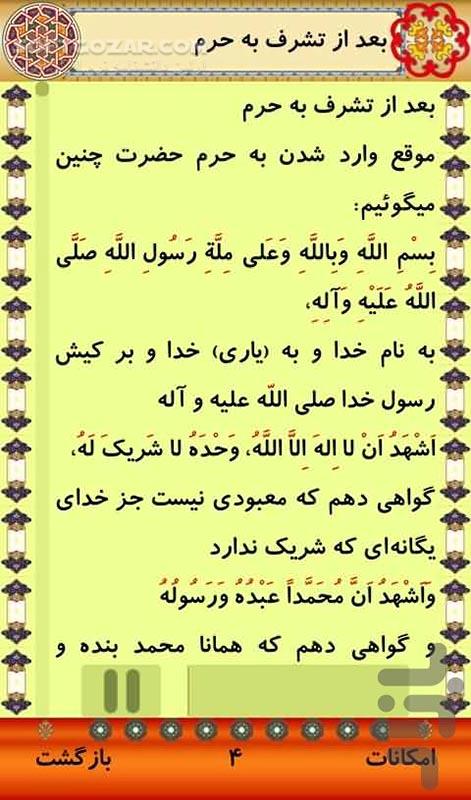 بعد از تشرف به حرم
بعد از تشرف به حرم
موقع وارد شدن به حرم حضرت چنین
میگوئیم:
بِسْمِ اللَّهِ وَبِاللَّهِ وَعَلی مِلَّةِ رَسُولِ اللَّهِ صَلَّی
اللَّهُ عَلَیْهِ وَآلِهِ،
به نام خدا و به (یاری) خدا و بر کیش
رسول خدا صلی اللّه علیه و آله
اَشْهَدُ اَنْ لا اِلهَ اِلاَّ اللَّهُ، وَحْدَهُ لا شَریکَ لَهُ،
گواهی دهم که معبودی نیست جز خدای
یگانه‌ای که شریک ندارد
وَاَشْهَدُ اَنَّ مُحَمَّداً عَبْدُهُ وَرَسُولُهُ
و گواهی دهم که همانا محمد بنده و
امکانات
۴
بازگشت